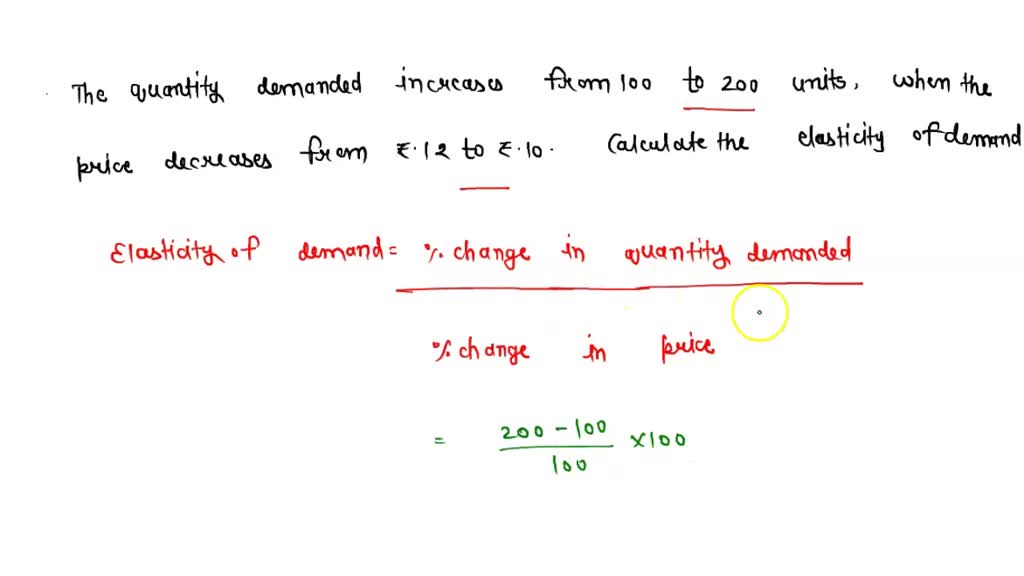 The quantity demanded increases from 100 to 200 units, when the
price decreases from ₹.12 to ₹.10. Calculate the elasticity of demand
Elasticity of demand = % change in quantity demanded
% change in price
= 200 - 100 × 100
100